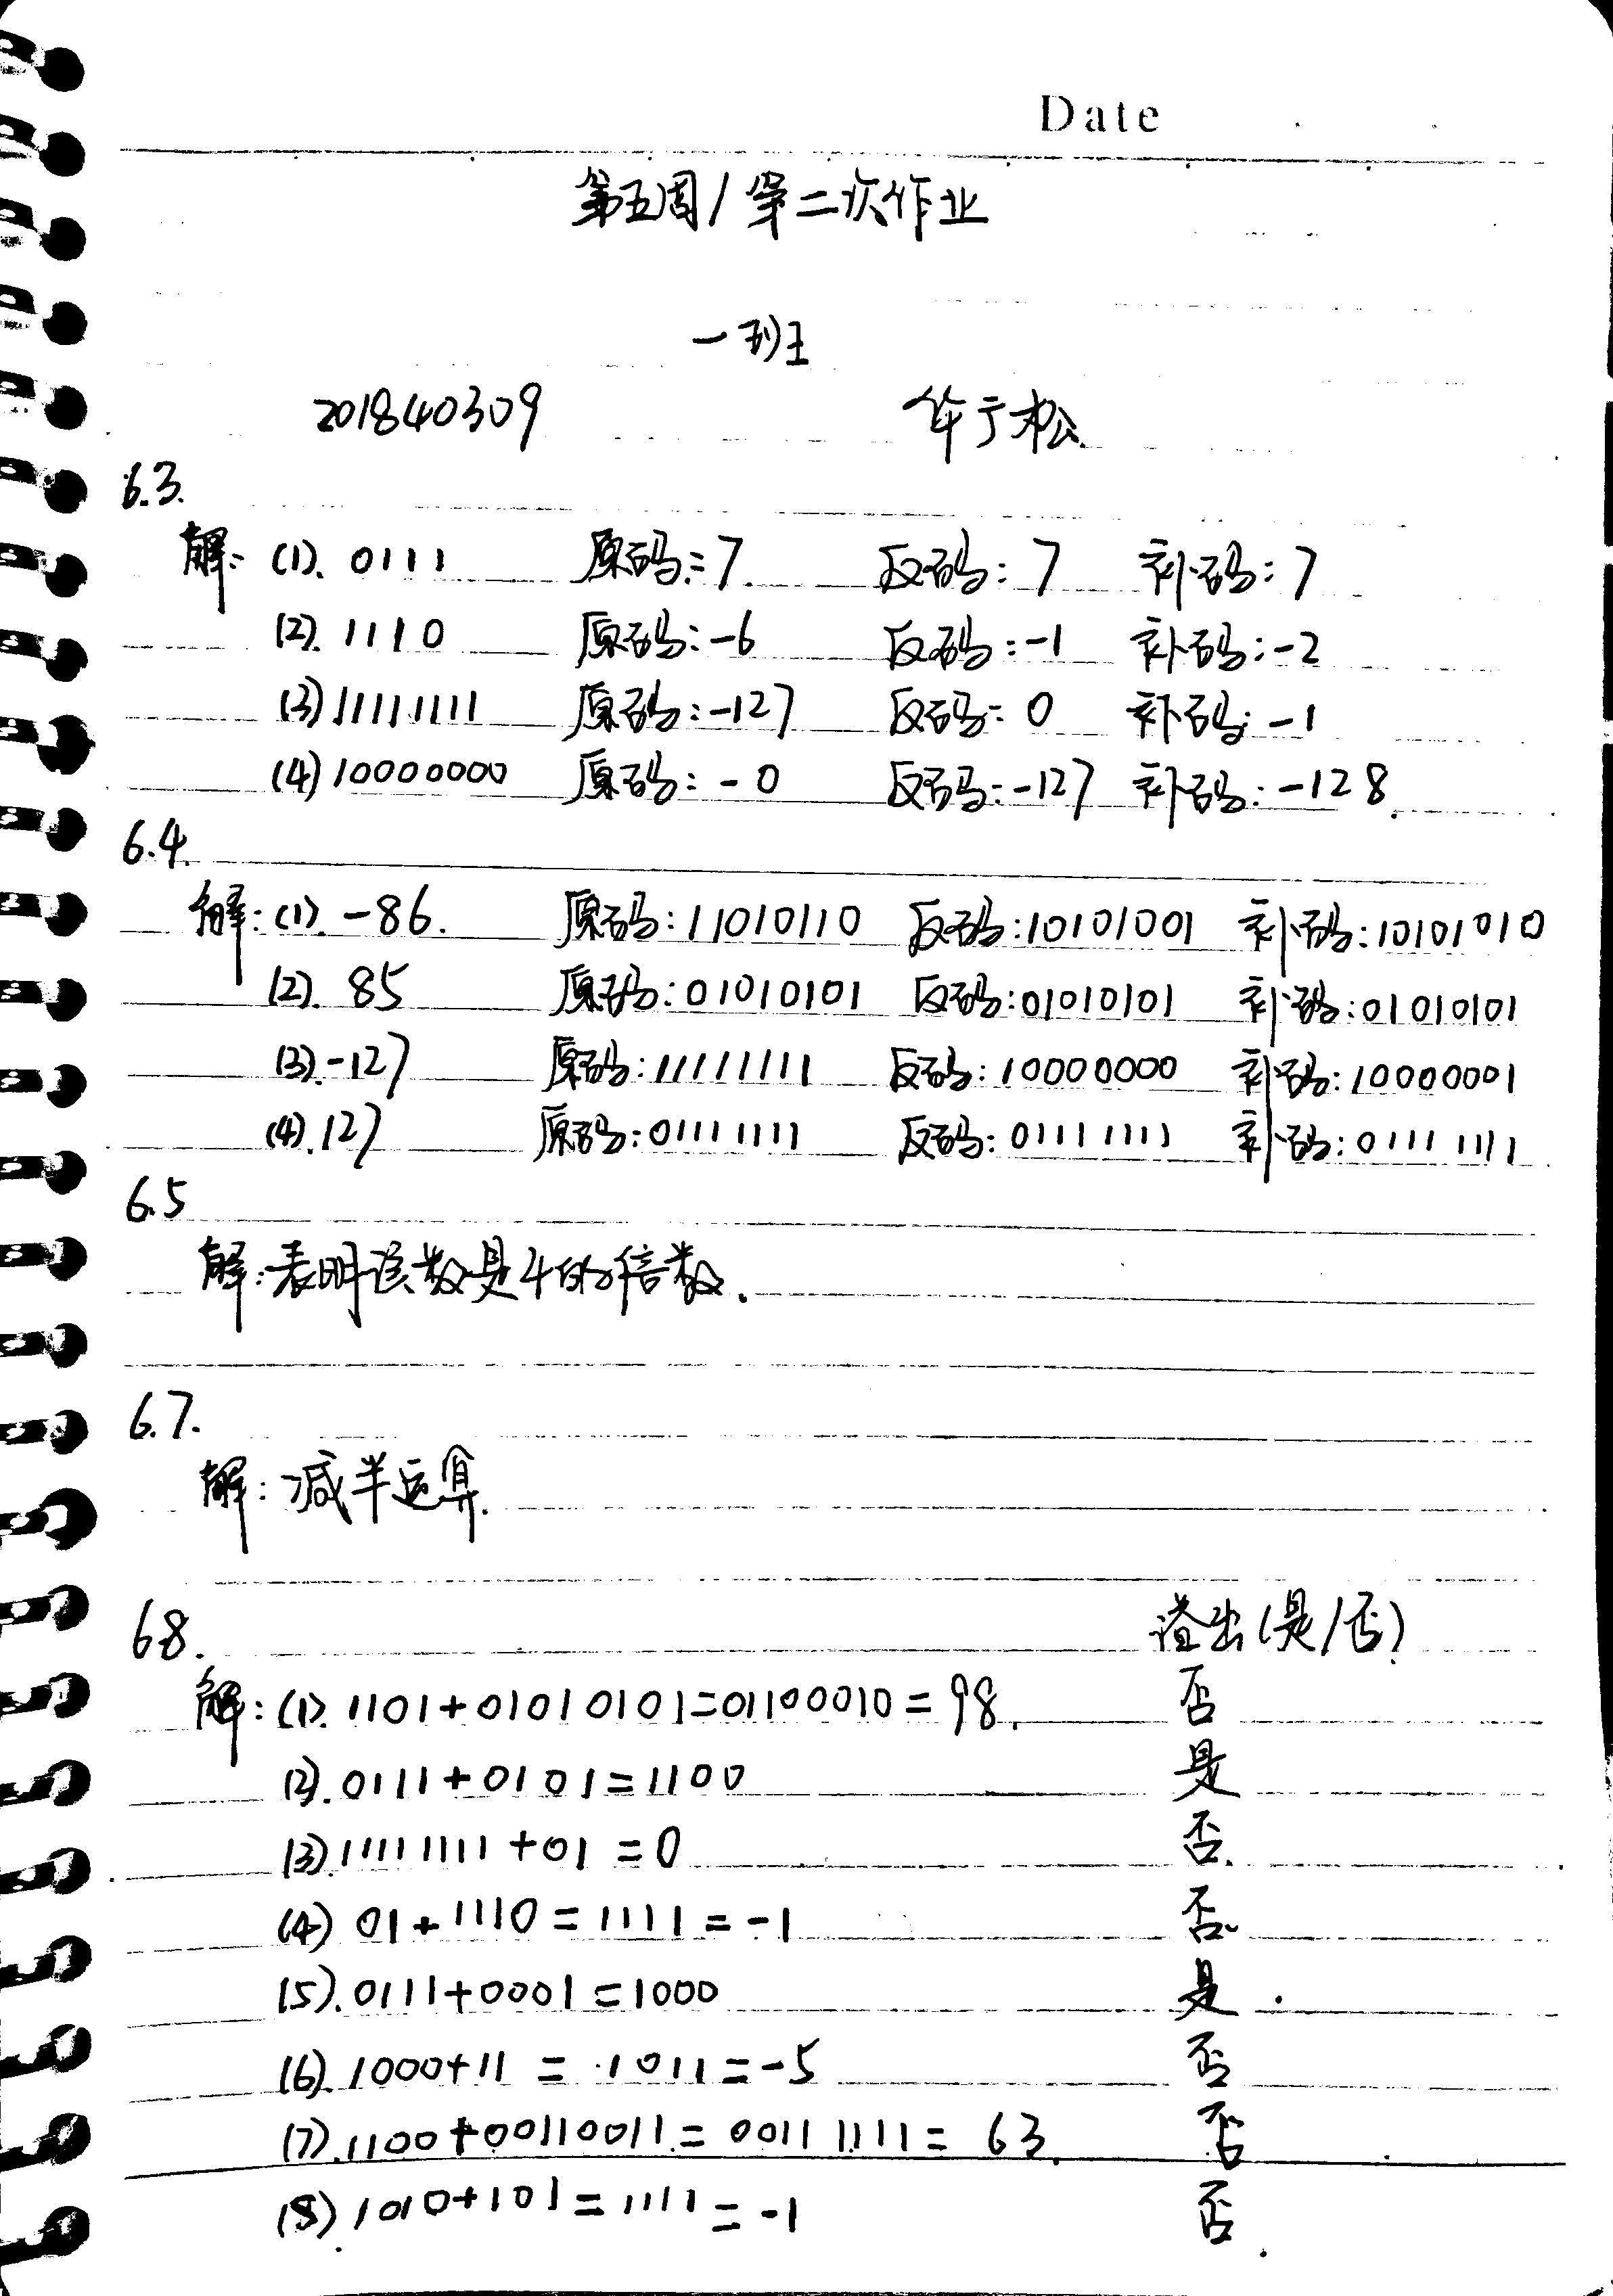 Date
第五周/第二次作业
一班
201840309 华于松
6.3.
解: (1). 0111 原码:7 反码:7 补码:7
(2). 1110 原码:-6 反码:-1 补码:-2
(3) 11111111 原码:-127 反码:0 补码:-1
(4) 10000000 原码:-0 反码:-127 补码:-128.
6.4.
解:(1). -86. 原码:11010110 反码:10101001 补码:10101010
(2). 85 原码:01010101 反码:01010101 补码:01010101
(3).-127 原码:11111111 反码:10000000 补码:10000001
(4).127 原码:01111111 反码:01111111 补码:01111111
6.5
解:表明该数是4的倍数.
6.7.
解:减半运算.
6.8. 溢出(是/否)
解:(1). 1101+01010101=01100010=98. 否
(2).0111+0101=1100 是
(3)11111111+01=0 否.
(4) 01+1110=1111=-1 否.
(5).0111+0001=1000 是.
(6).1000+11=1011=-5 否
(7).1100+00110011=00111111=63. 否
(8) 1010+101=1111=-1 否.